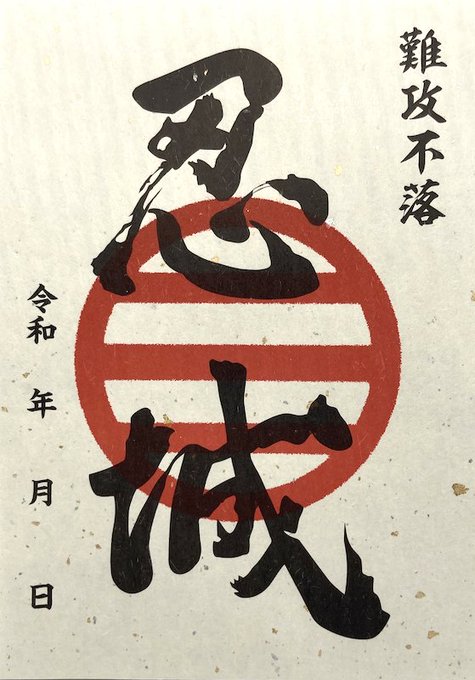 難攻不落
忍城
令和 年 月 日